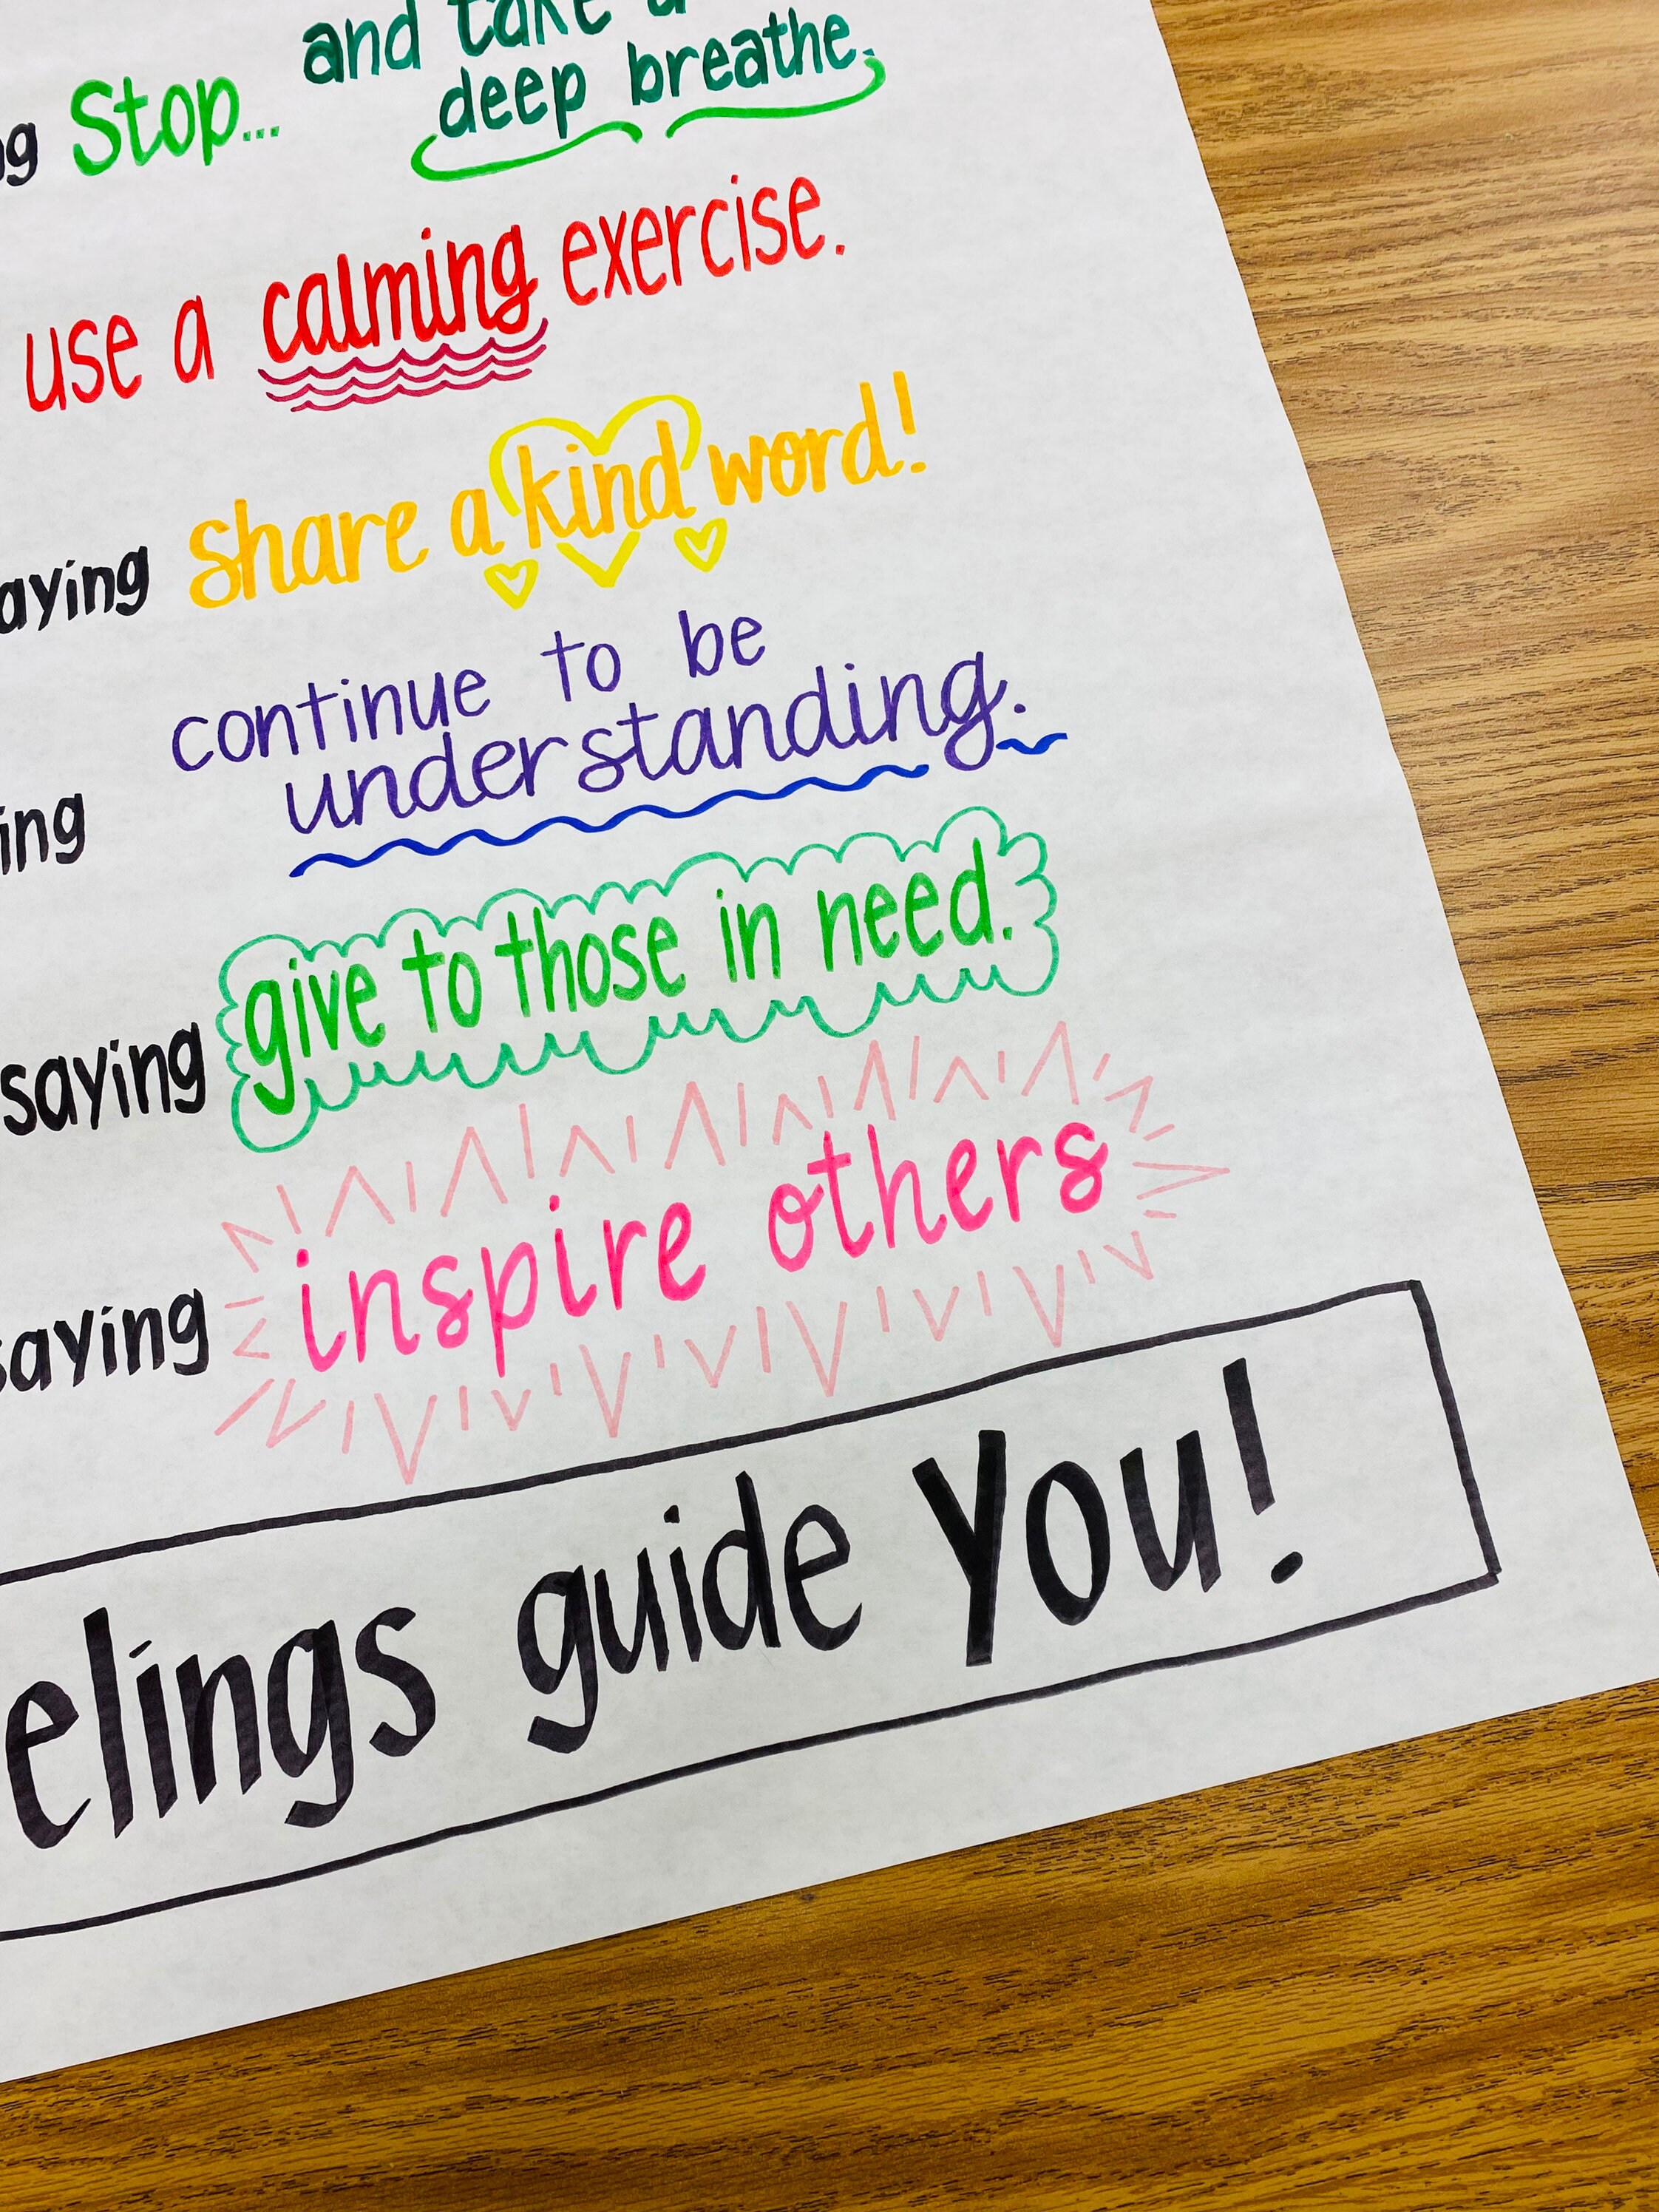 and take a
Stop... deep breathe.
use a calming exercise.
saying share a kind word!
continue to be
understanding.
saying give to those in need.
saying inspire others
elings guide You!